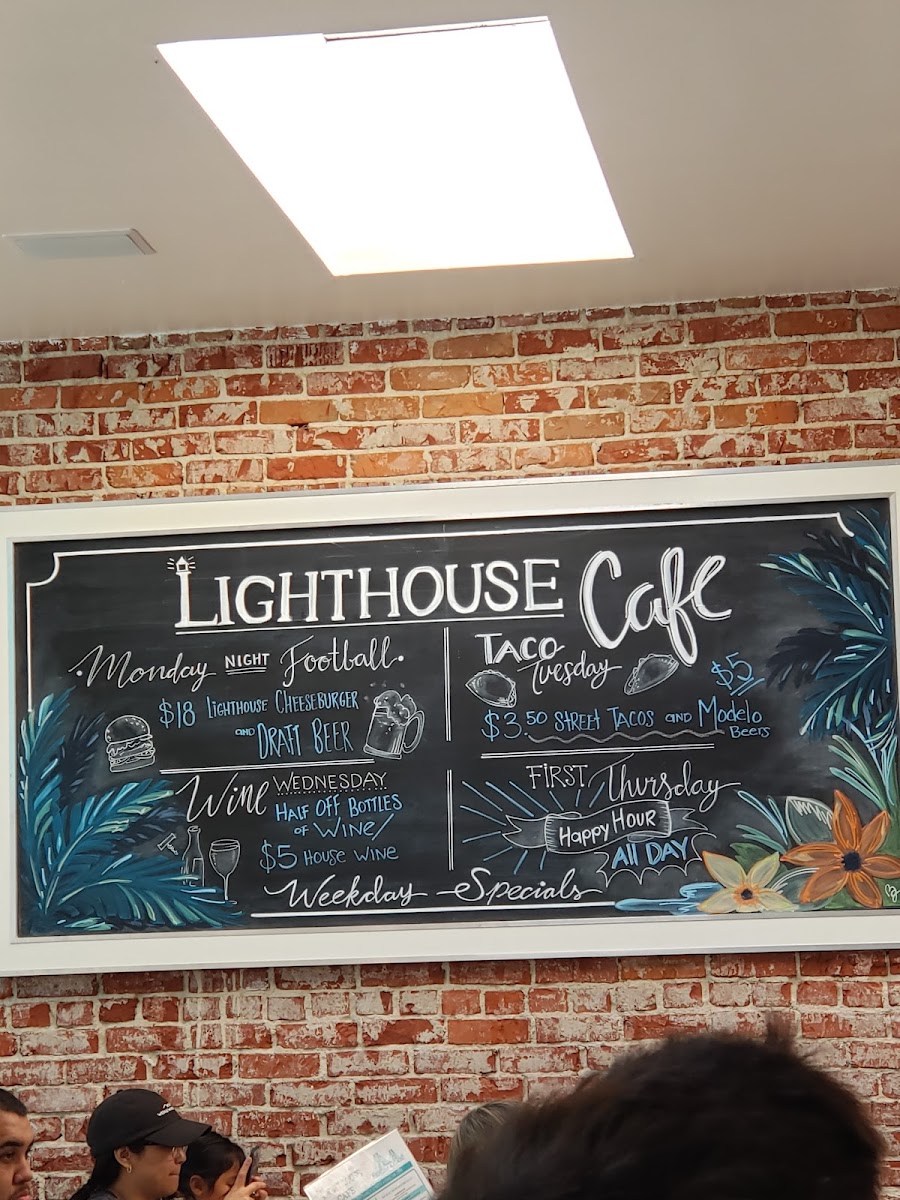 LIGHTHOUSE Cafe
Monday NIGHT Football
$18 LIGHTHOUSE CHEESEBURGER
AND DRAFT BEER
TACO
Tuesday
$3.50 STREET TACOS AND $5 Modelo
Beers
Wine WEDNESDAY
HALF OFF BOTTLES
OF WINE/
$5 HOUSE WINE
FIRST Thursday
Happy HOUR
All DAY
Weekday Specials